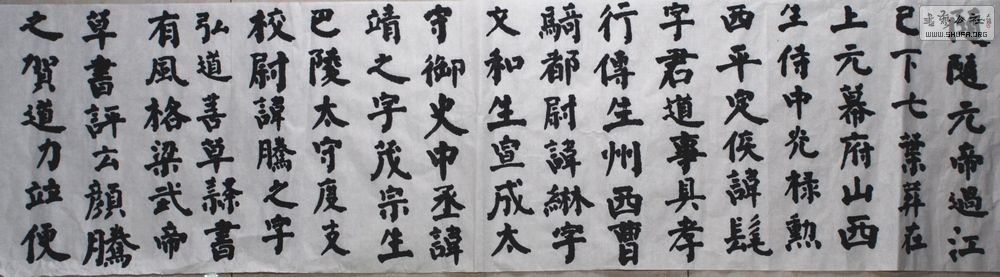 隨元帝過江
已下七葉葬在
上元幕府山西
生侍中光祿勲
西平定侯諱髦
字君道事具孝
行傳生州西曹
騎都尉諱綝字
文和生宣成太
守御史中丞諱
靖之字茂宗生
巴陵太守度支
校尉諱騰之字
弘道善草隸書
有風格梁武帝
草書評云顏騰
之賀道力竝便
WWW.SHUFA.ORG